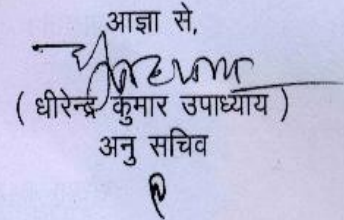 आज्ञा से,
( धीरेन्द्र कुमार उपाध्याय )
अनु सचिव